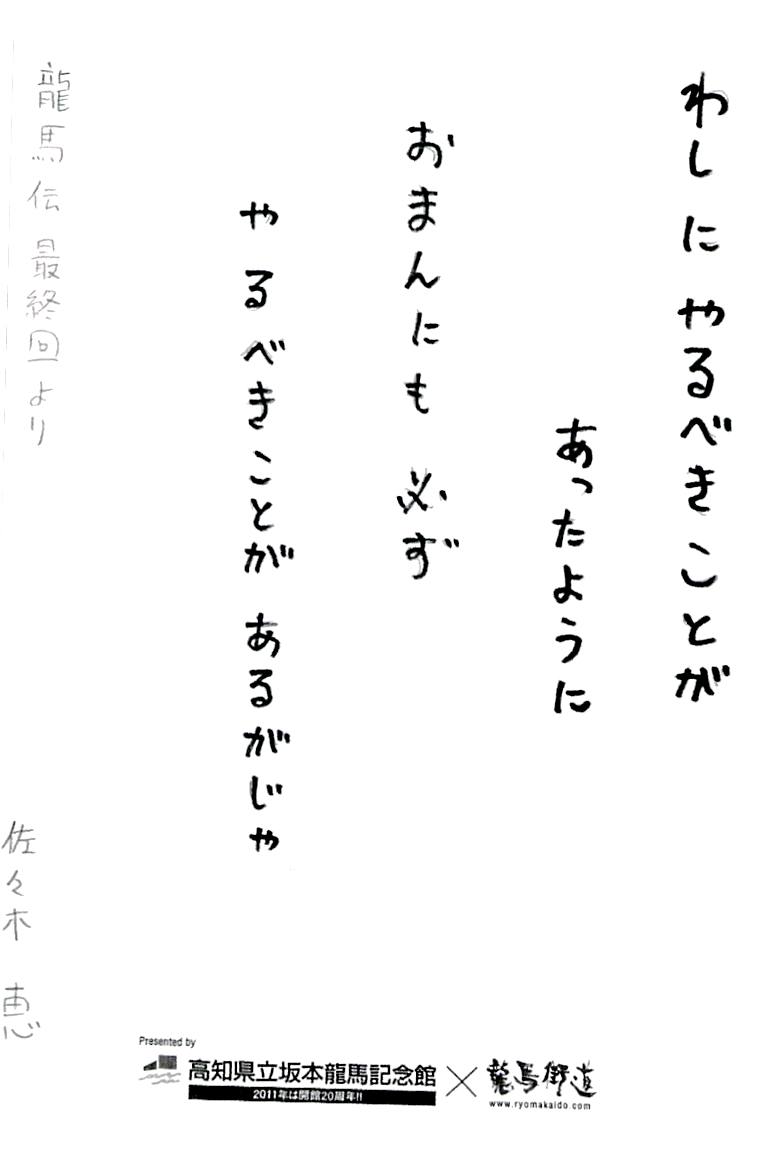 わしにやるべきことが
あったように
おまんにも必ず
やるべきことがあるがじゃ
龍馬伝最終回より
佐々木恵
Presented by
高知県立坂本龍馬記念館
2011年は開館20周年!!
×
龍馬街道
www.ryomakaido.com